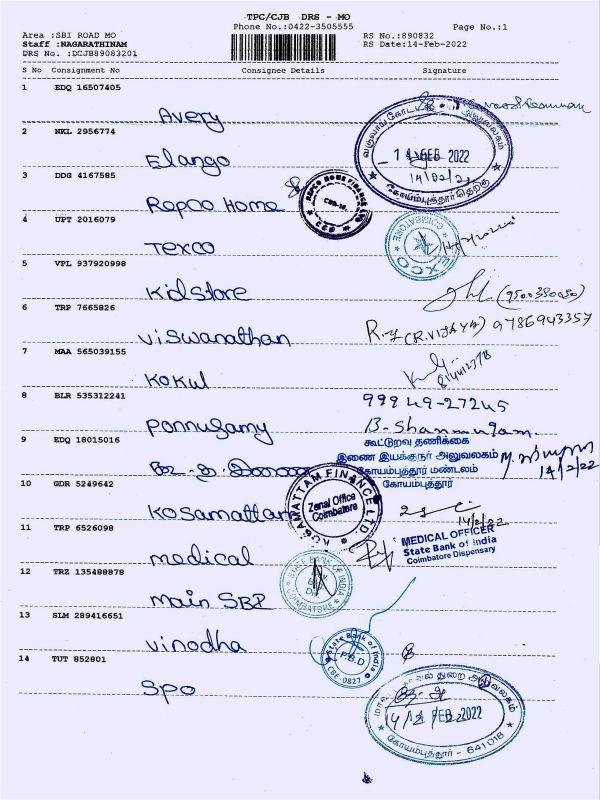 TPC/CJB DRS - MO
Phone No.:0422-3505555
Page No.:1
Area :SBI ROAD MO
RS No.:890832
Staff :NAGARATHINAM
RS Date:14-Feb-2022
DRS No. :DCJB89083201
S No Consignment No Consignee Details Signature
1 EDQ 16507405
Avery
வருவாய் கோட்
அலுவலகம்
14 FEB 2022
14/02/22
கோயம்புத்தூர் தெற்கு
2 NKL 2956774
Elango
3 DDG 4167585
Repco Home
REPCO HOME FINANCE LTD
4 UPT 2016079
Texco
TEXCO
COIMBATORE
5 VPL 937920998
Kidstore
6 TRP 7665826
Viswanathan
(R.VIJAYA) 9786943357
7 MAA 565039155
Kokul
8 BLR 535312241
99949-27245
Ponnusamy
B-Shanmugam
9 EDQ 18015016
கூட்டுறவு தணிக்கை
இணை இயக்குநர் அலுவலகம்
கோயம்புத்தூர் மண்டலம்
கோயம்புத்தூர்
14/2/22
10 GDR 5249642
Kosamattam
KOSAMATTAM FINANCE LTD
Zonal Office
Coimbatore
14/2/22
11 TRP 6526098
medical
MEDICAL OFFICER
State Bank of India
Coimbatore Dispensary
12 TRZ 135488878
main SBI
STATE BANK OF INDIA
COIMBATORE
13 SLM 289416651
Vinodha
State Bank of India
P.B.D
CBE-0827
14 TUT 852801
SPO
துறை அலுவலகம்
14 FEB 2022
கோயம்புத்தூர் - 641018